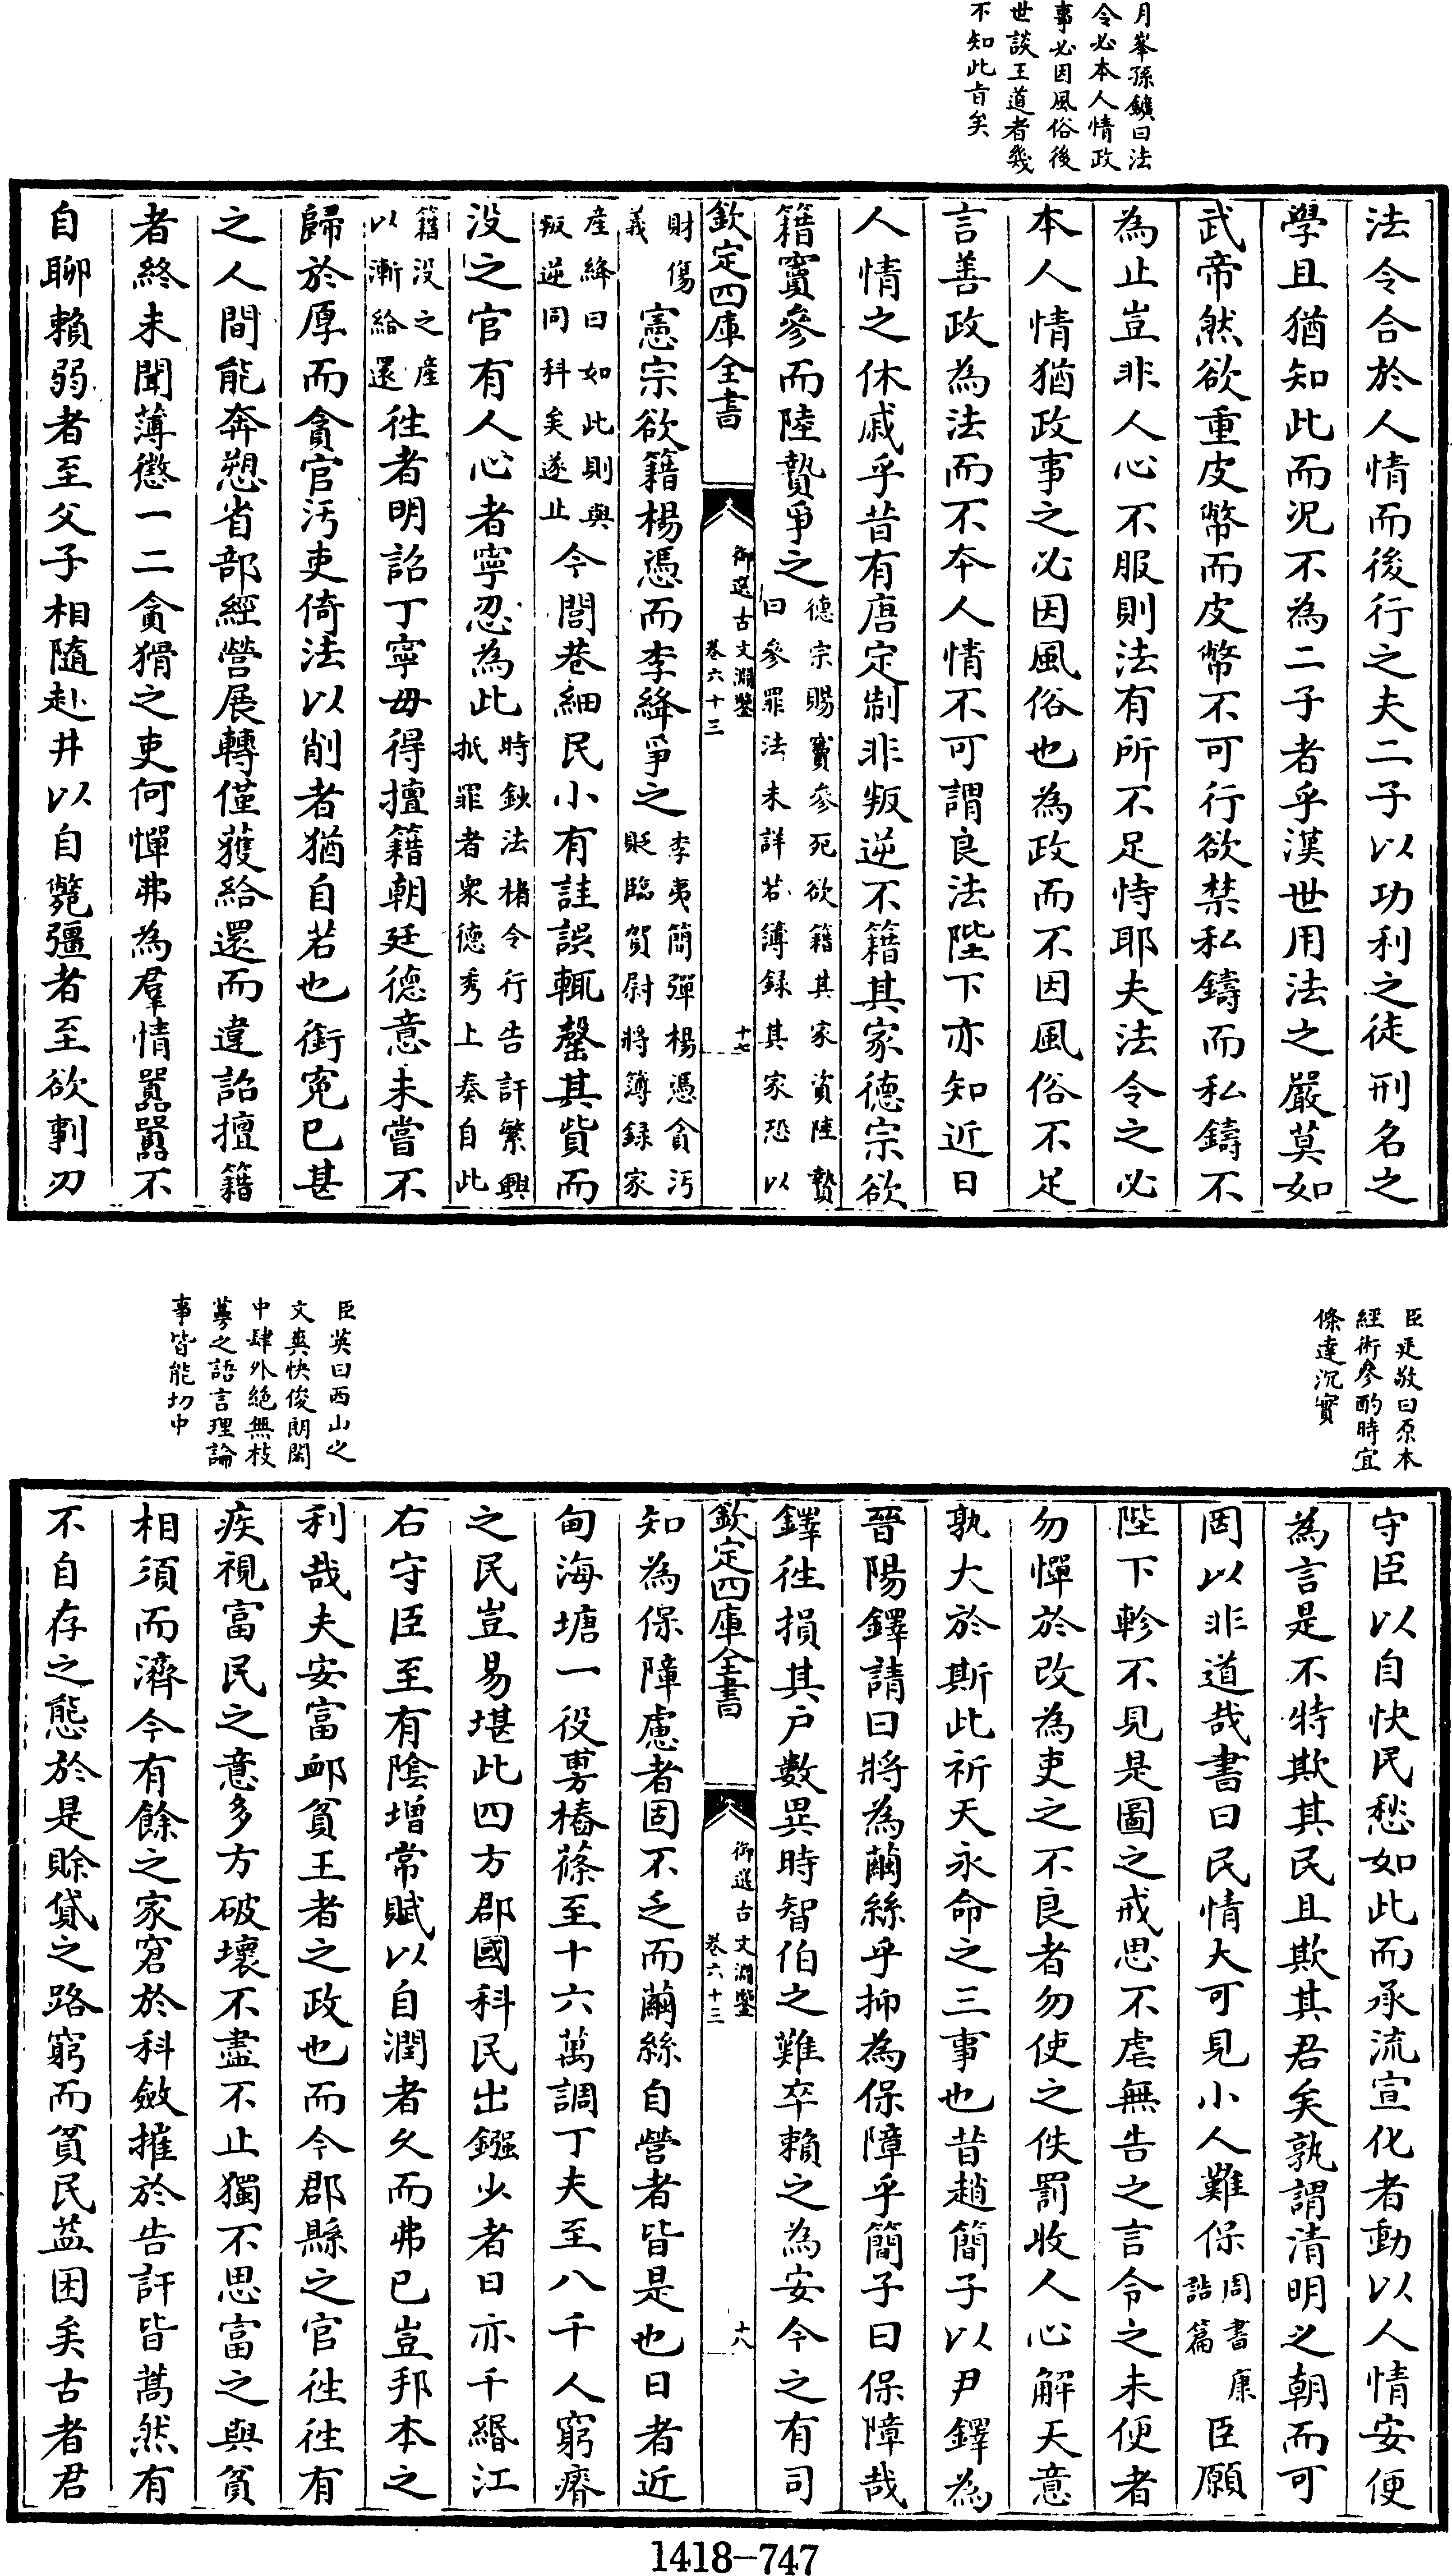 月峯孫鑛曰法
令必本人情政
事必因風俗後
世談王道者幾
不知此旨矣
法令合於人情而後行之夫二子以功利之徒刑名之
學且猶知此而況不為二子者乎漢世用法之嚴莫如
武帝然欲重皮幣而皮幣不可行欲禁私鑄而私鑄不
為止豈非人心不服則法有所不足恃耶夫法令之必
本人情猶政事之必因風俗也為政而不因風俗不足
言善政為法而不本人情不可謂良法陛下亦知近日
人情之休戚乎昔有唐定制非叛逆不籍其家德宗欲
籍竇參而陸贄爭之德宗賜竇參死欲籍其家資陸贄
曰參罪法未詳若簿録其家恐以
欽定四庫全書
御選古文淵鑒
卷六十三
十七
財傷
義
憲宗欲籍楊憑而李絳爭之李夷簡彈楊憑貪污
貶臨賀尉將簿録家
産絳曰如此則與
叛逆同科矣遂止
今閭巷細民小有詿誤輒罄其貲而
没之官有人心者寧忍為此時鈔法楮令行告訐繁興
抵罪者衆德秀上奏自此
籍没之產
以漸給還
往者明詔丁寧毋得擅籍朝廷德意未嘗不
歸於厚而貪官汚吏倚法以削者猶自若也銜寃已甚
之人間能奔愬省部經營展轉僅獲給還而違詔擅籍
者終未聞薄懲一二貪猾之吏何憚弗為羣情囂囂不
自聊賴弱者至父子相隨赴井以自斃彊者至欲剚刃
臣廷敬曰原本
經術參酌時宜
條達沉實
臣英曰西山之
文爽快俊朗閎
中肆外絶無枝
蔓之語言理論
事皆能切中
守臣以自快民愁如此而承流宣化者動以人情安便
為言是不特欺其民且欺其君矣孰謂清明之朝而可
罔以非道哉書曰民情大可見小人難保周書康
誥篇
臣願
陛下軫不見是圖之戒思不虐無告之言令之未便者
勿憚於改為吏之不良者勿使之佚罰收人心解天意
孰大於斯此祈天永命之三事也昔趙簡子以尹鐸為
晉陽鐸請曰將為繭絲乎抑為保障乎簡子曰保障哉
鐸徃損其户數異時智伯之難卒賴之為安今之有司
欽定四庫全書
御選古文淵鑒
卷六十三
十八
知為保障慮者固不乏而繭絲自營者皆是也日者近
甸海塘一役剪椿篠至十六萬調丁夫至八千人窮瘠
之民豈易堪此四方郡國科民出鏹少者日亦千緡江
右守臣至有隂增常賦以自潤者久而弗已豈邦本之
利哉夫安富䘏貧王者之政也而今郡縣之官徃徃有
疾視富民之意多方破壞不盡不止獨不思富之與貧
相須而濟今有餘之家窘於科斂摧於告訐皆蒿然有
不自存之態於是賒貸之路窮而貧民益困矣古者君
1418-747